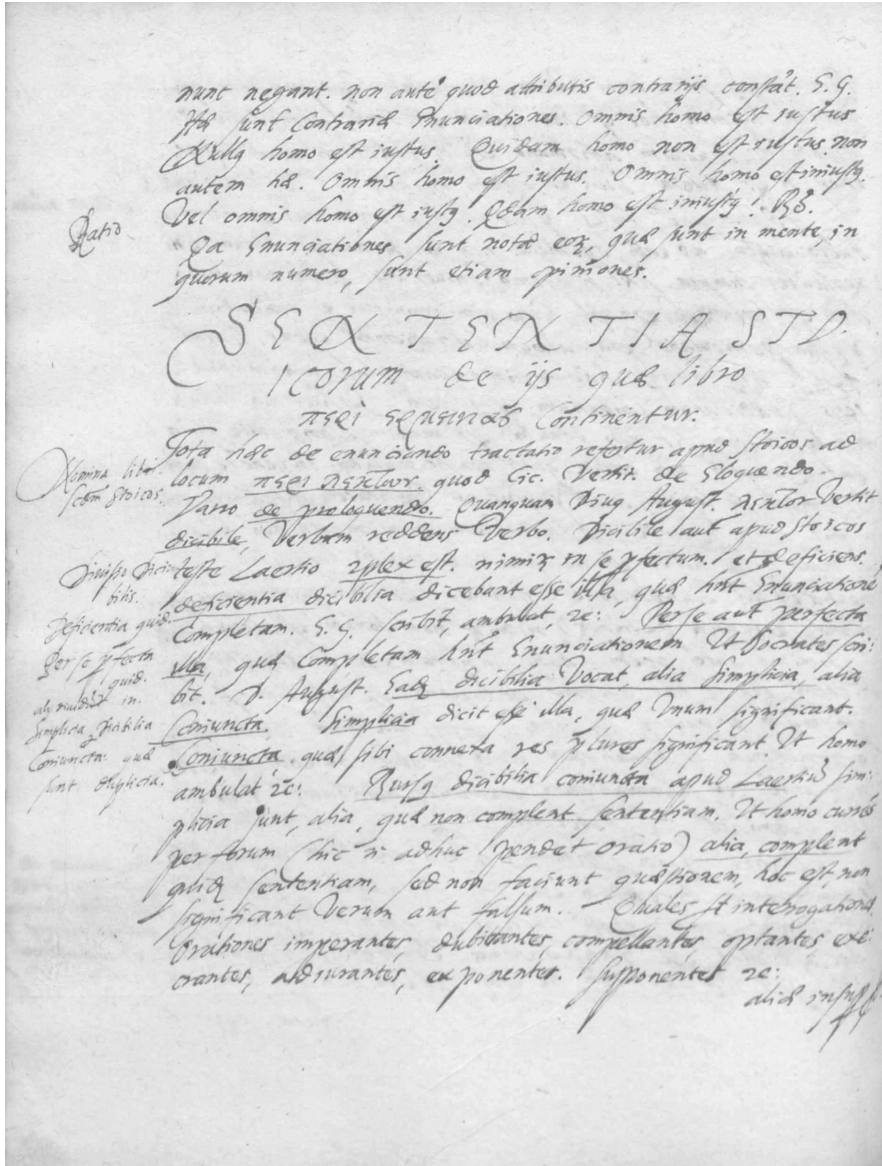 nunc negant. non autē quod attributis contrarijs constāt. E. G.
Hæ sunt Contrariæ Enunciationes. Omnis homo est iustus
Nullq homo est iustus. Quidam homo non est iustus. non
autem hæ. Omnis homo est iustus. Omnis homo est iniustq.
Vel omnis homo est iustq. Qdam homo est iniustq!
Ratio
Qa Enunciationes sunt notæ eoꝝ, quæ sunt in mente, in
quorum numero, sunt etiam opiniones.
SENTENTIA STO-
ICORUM de ijs quæ libro
περὶ ἑρμηνείας Continentur.
Tota hæc de enunciando tractatio refertur apud stoicos ad
Nomina libri
scdm Stoicos.
locum περὶ λεκτῶν. quod Cic. Vertit. de Eloquendo.
Varro de proloquendo. Quanquam Diuq August. λεκτὸν Vertit
dicibile, Verbum reddens Verbo. Dicibile aut apud Stoicos
Diuisio Dici-
bilis.
teste Laertio 2plex est. nimiꝝ in se pfectum. et deficiens.
deficientia dicibilia dicebant esse illa, quæ hnt Enunciationē
Deficientia quid.
Completam. E. G. scribit, ambulat, ꝛc: Per se aut perfecta
Per se pfecta
quid.
illa, quæ Completam hnt Enunciationem Ut Socrates scri-
bit. D. August. Eadē dicibilia Vocat, alia simplicia, alia
aly diuidūt in
Simplicia Dicibilia
Coniuncta. Simplicia dicit esse illa, quæ Vnum significant.
Coniuncta: quæ
sunt duplicia.
Coniuncta quæ sibi connexa res plures significant. Ut homo
ambulat ꝛc: Rursq dicibilia coniuncta apud Laertiū sim-
plicia sunt, alia, quæ non complent sententiam. Ut homo currēs
per forum (hic n adhuc pendet oratio) alia, complent
quidē sententiam, sed non faciunt quæstionem, hoc est, non
significant Verum aut falsum. Quales st interrogationes
Orationes imperantes, dubitantes, compellantes, optantes exe-
crantes, adiurantes, exponentes. supponentes ꝛc:
aliæ insup